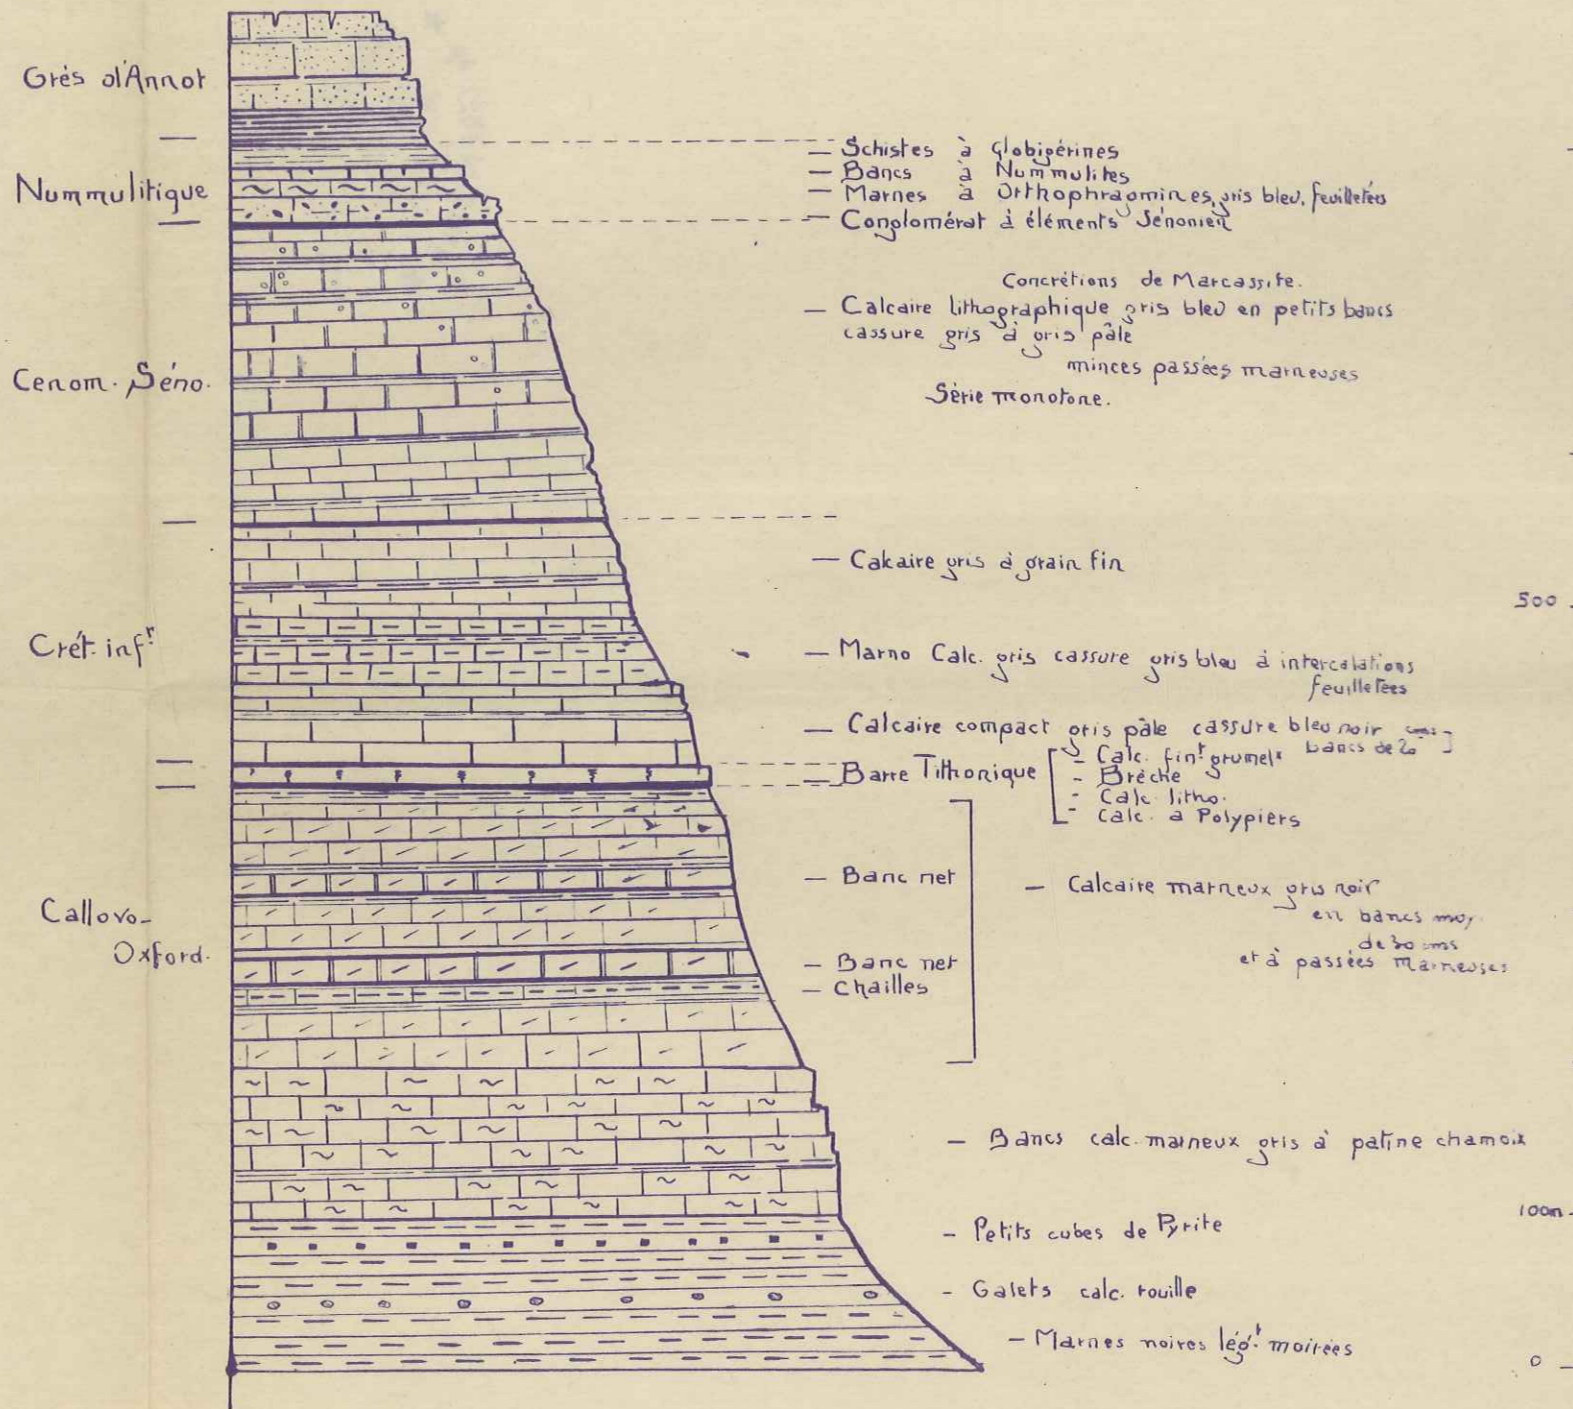 Grès d'Annot
Nummulitique
Cenom. Séno.
Crét. infr
Callovo-
Oxford.
— Schistes à Globigérines
— Bancs à Nummulites
— Marnes à Orthophragmines, gris bleu, feuilletées
— Conglomérat à éléments Sénonien
Concrétions de Marcassite.
— Calcaire lithographique gris bleu en petits bancs
cassure gris à gris pâle
minces passées marneuses
Série monotone.
— Calcaire gris à grain fin
— Marno Calc. gris cassure gris bleu à intercalations
feuilletées
— Calcaire compact gris pâle cassure bleu noir
bancs de 20
— Barre Tithonique
- Calc. fint grumelx
- Brèche
- Calc. litho.
- Calc. à Polypiers
— Banc net
— Calcaire marneux gris noir
en bancs moy.
de 30 cms
et à passées marneuses
— Banc net
— Chailles
— Bancs calc. marneux gris à patine chamoix
- Petits cubes de Pyrite
- Galets calc. rouille
— Marnes noires légt moirées
500
100m
0